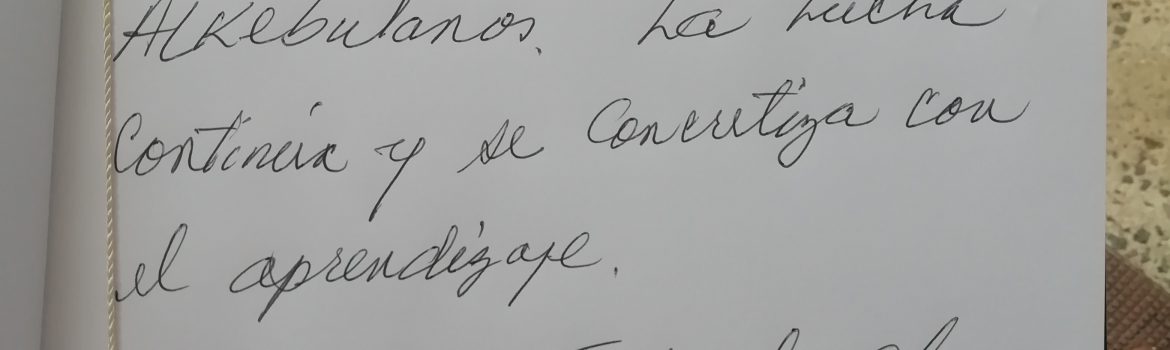 Alkebulanos. La lucha
Continúa y se concretiza con
el aprendizaje.